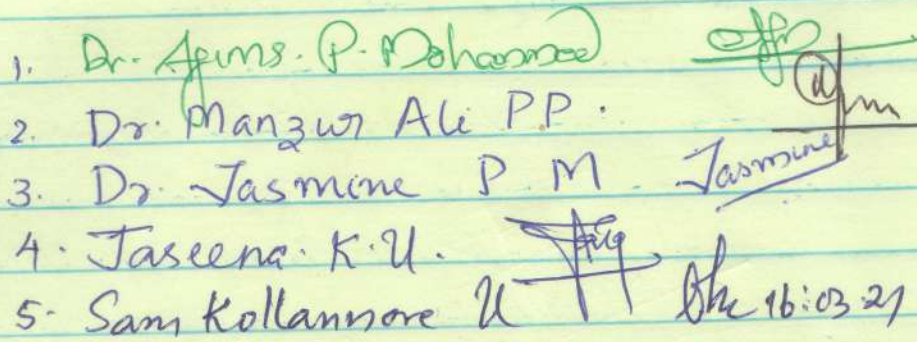 1. Dr. Ajims. P. Mohammed
2. Dr. Manzur Ali PP.
3. Dr. Jasmine P M Jasmine
4. Jaseena. K.U.
5. Sam Kollannore U 16:03.21